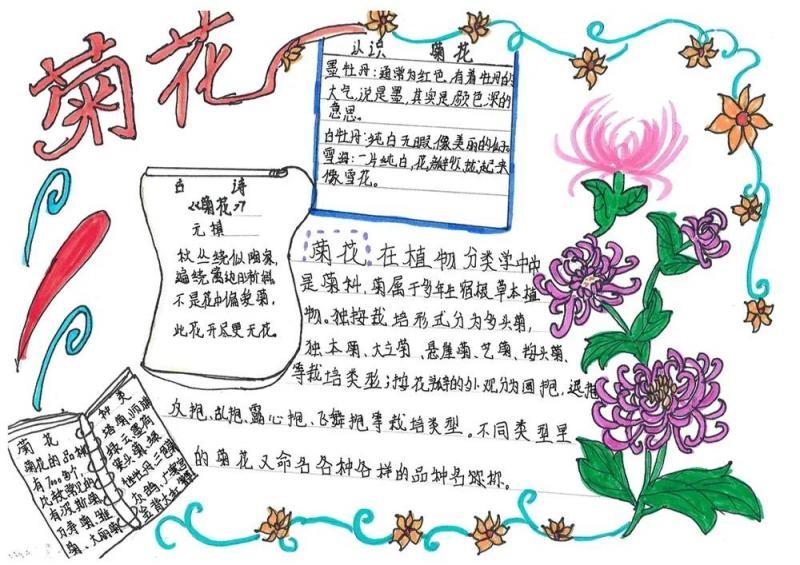 菊花
认识 菊花
墨牡丹：通常为红色，有着牡丹的
大气，说是墨，其实是颜色深的
意思。
白牡丹：纯白无暇，像美丽的
雪海：一片纯白，花瓣
像雪花。
古 诗
《菊花》
元稹
秋丛绕舍似陶家，
遍绕篱边日渐斜。
不是花中偏爱菊，
此花开尽更无花。
菊花 在植物分类学中
是菊科，菊属于多年生宿根草本植
物。独按栽培形式分为多头菊，
独本菊、大立菊、悬崖菊、艺菊、
等栽培类型；按花瓣的外观分为园抱，退抱
反抱、乱抱、露心抱、飞舞抱等栽培类型。不同类型里
的菊花又命名各种各样的品种名称。
菊花
菊花的品种
有7000多个，
比较常见的
有波斯菊
万寿菊、雏
菊、大丽菊
种类